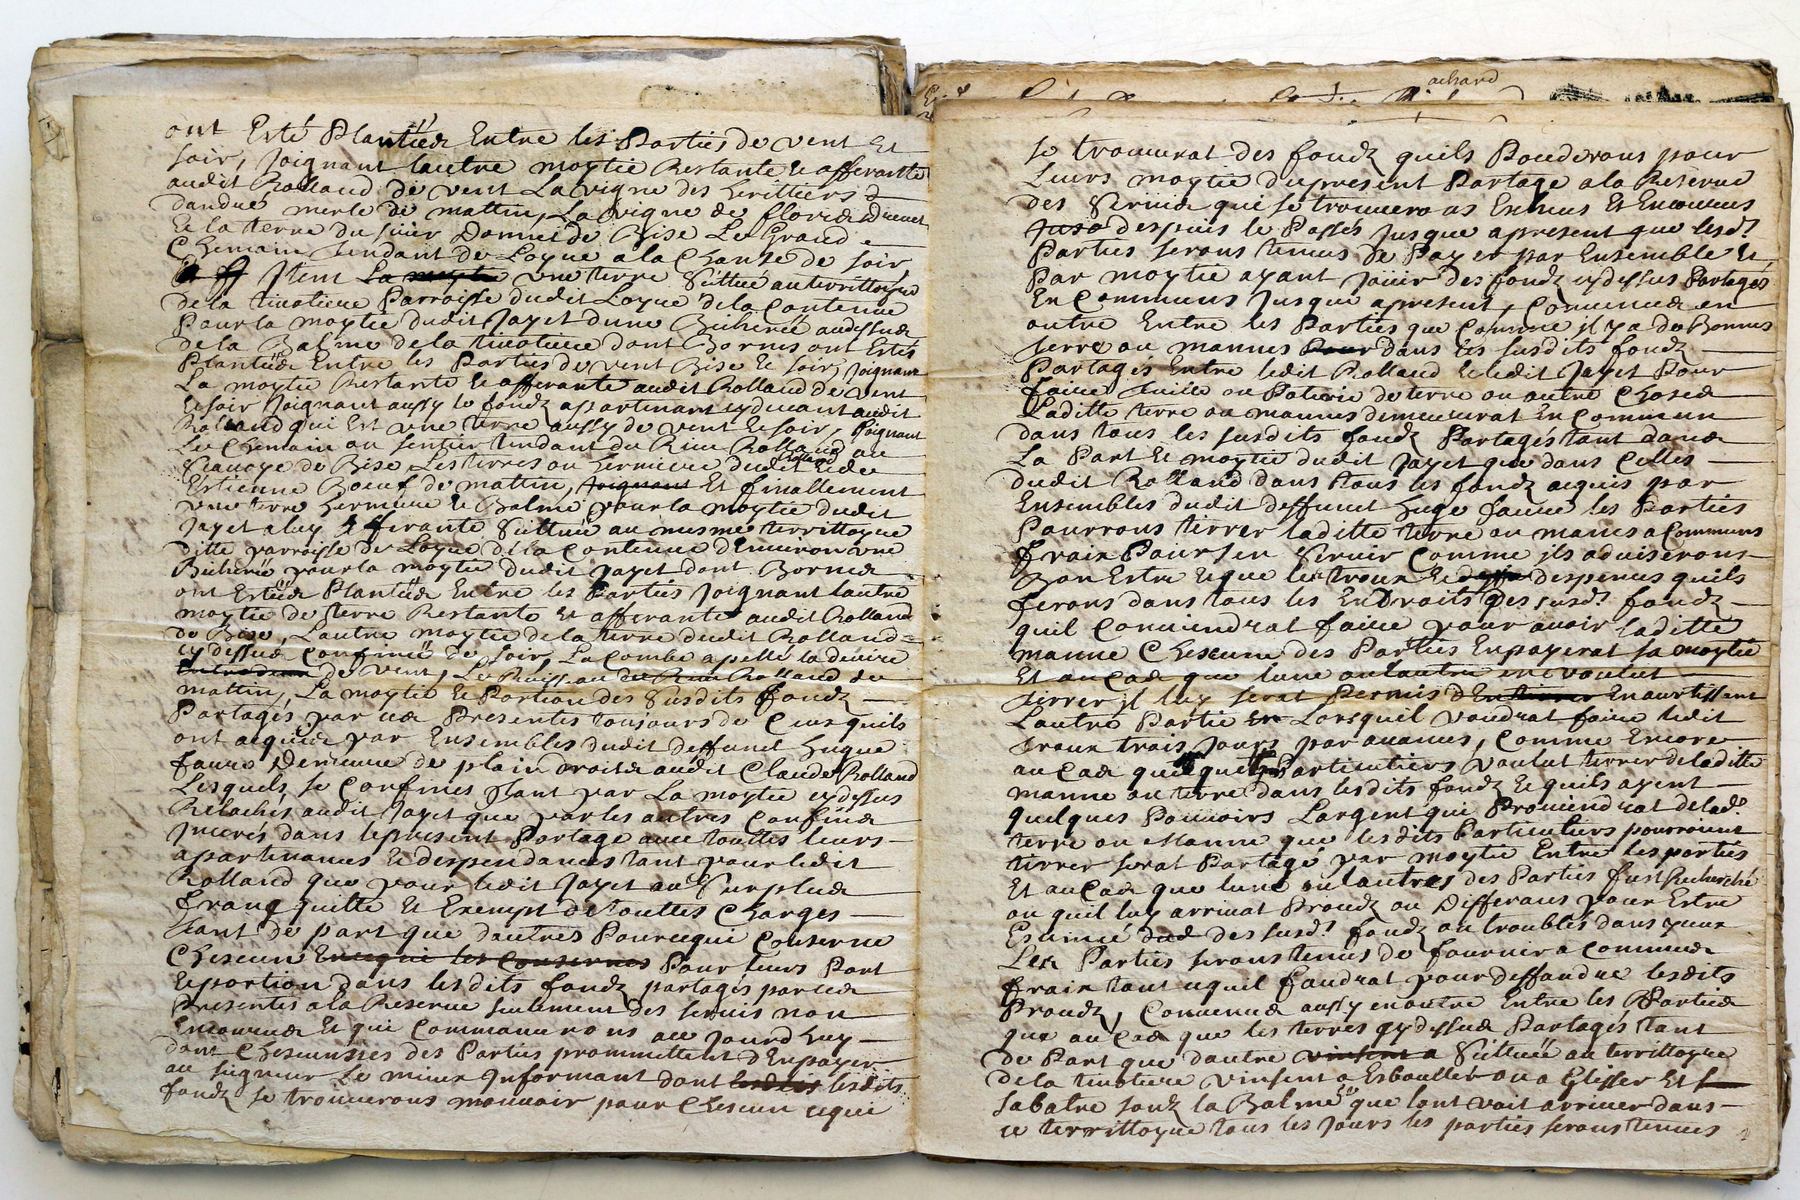 ont Esté Plantéès Entre les Parties de vent Et
soir, Joignant lautre moytie Restante Et afferante
audit Rolland de vent La vigne des heritiers
merle de mattin, La vigne de
Et la terre du sieur de Bise Le Grand
Chemain tendant de Loyue a la de soir
Item La moytie une terre Sittuée au territtoyre
de la tinotiere Parroisse dudit Loyue de la Contenue
Pour la moytie dudit Jayet dune Bicherée audessus
de la Balme de la tinotiere dont Bornes ont Estés
Plantéès Entre les Parties de vent Bise Et soir, Joignant
La moytie Restante Et afferante audit Rolland de vent
Et soir Joignant aussy le fondz apartenant cydevant audit
Rolland qui Est une terre aussy de vent Et soir, Joignant
Le Chemain ou sentier tendant du Rieu Rolland au
de Bise Les terres ou hermiere dudit Et de
Estienne Boeuf de mattin, Joignant Et finallement
une terre hermiere Et Balme pour la moytie dudit
Jayet a luy afferante Sittuée au mesme territtoyre
ditte parroisse de Loyue de la Contenue dEnuiron une
Bicherée pour la moytie dudit Jayet dont Bornes
ont Estéès Plantéès Entre les Parties Joignant lautre
moytie de terre Restante Et afferante audit Rolland
de Bise, Lautre moytie de la terre dudit Rolland
cydessus Confinée de soir, La Combe apellé la
de vent, Le Ruisseau du Rieu Rolland de
mattin, La moytie Et Portion des Susdits fondz
Partagés par ces Presentes tousjours de Ceux quils
ont acquis par Ensembles dudit deffunct hugue
faure Derniere de plain droits audit Claude Rolland
Lesquels se Confines tant par La moytie cydessus
Relachés audit Jayet que par les autres Confins
Incerés dans le present Partage auec touttes leurs
apartenances Et despendances tant pour ledit
Rolland que pour ledit Jayet au Surplus
franq quitte Et Exempt de touttes Charges
tant de part que dautres Pource qui Conserne
Chescun Encequi les Consernes Pour leurs Part
Et portion dans lesdits fondz partagés par ces
Presentes a la Reserue seulement des seruis non
Encourus Et qui Commancerons au Jourdhuy
dont Chescunsses des Parties promettent dEnpayer
au seigneur Le mieux Informant dont lesdits
fondz se trouuerons mouuoir pour Chescun ce qui
se trouuerat des fondz quils Poderons pour
Leurs moytie du present Partage a la Reserue
des Seruice qui se trouuerons Escheus Et Encourus
Jusq despuis le Passés Jusque apresent que lesd.
Parties serons tenus de Payer par Ensemble Et
Par moytie ayant Jouir des fondz cydessus Partagés
En Communs Jusque apresent, Conuenus en
outre Entre les Parties que Comme jl y a de Bonnes
terre ou mannes Pour dans les susdits fondz
Partagés Entre ledit Rolland Et ledit Jayet Pour
faire tuille ou Poterie de terre ou autre Choses
Laditte terre ou mannes demeurerat En Commun
dans tous les susdits fondz Partagés tant dans
La Part Et moytie dudit Jayet que dans Celles
dudit Rolland dans tous les fondz acquis par
Ensembles dudit deffunct huge faure les Parties
Pourrons tirrer laditte terre ou manes a Communs
fraix Pour sen seruir Comme jls aduiserons
Bon Estre Et que les troux Et despences quils
ferons dans tous les EnDroits des susd. fondz
quil Conuiendrat faire pour auoir laditte
manne Chescune des Parties Enpayerat sa moytie
Et au Cas que lune ou lautre en voulut
tirrer jl luy serat Permis dEn tirrer Enaurtissant
Lautre Partie En Lorsquil voudrat faire ledit
troux trois Jours par auances, Comme Encore
au Cas que quelques Particuliers voulut tirrer de laditte
manne ou terre dans lesdits fondz Et quils ayent
quelques Pouuoirs Largent qui Prouiendrat de lad.
terre ou Manne que lesdits Particuliers pourroient
tirrer serat Partagé par moytie Entre les parties
Et au Cas que lune ou lautres des Parties fust Recherché
ou quil luy arriuat Proudz ou Differans pour Estre
dud des susd. fondz ou troublés dans yceux
Les Parties serons tenus de fournir a Communs
fraix tant ce quil faudrat pour deffandre lesdits
Proudz, Conuenus aussy en outre Entre les Parties
que au Cas que les terres cydessus Partagés tant
de Part que dautre vinsent a Sittuéé au territtoyre
de la tinotiere vinsent a Esbouller ou a Glisser Et
sabatre soudz la Balme que lont voit arriuer dans
ce territtoyre tous les Jours les parties serons tenues